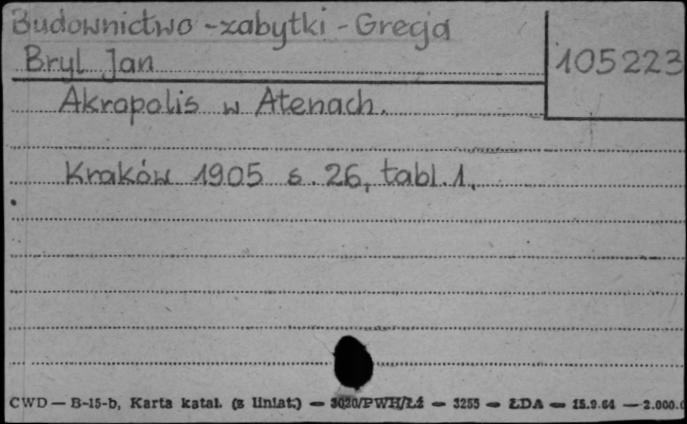 Budownictwo - zabytki - Grecja
Bryl Jan
105223
Akropolis w Atenach.
Kraków 1905 s. 26, tabl. 1.
CWD — B-15-b, Karta katal. (z liniat.) — 3020/PWH/Łź — 3255 — ŁDA — 15.9.64 — 2.000.0